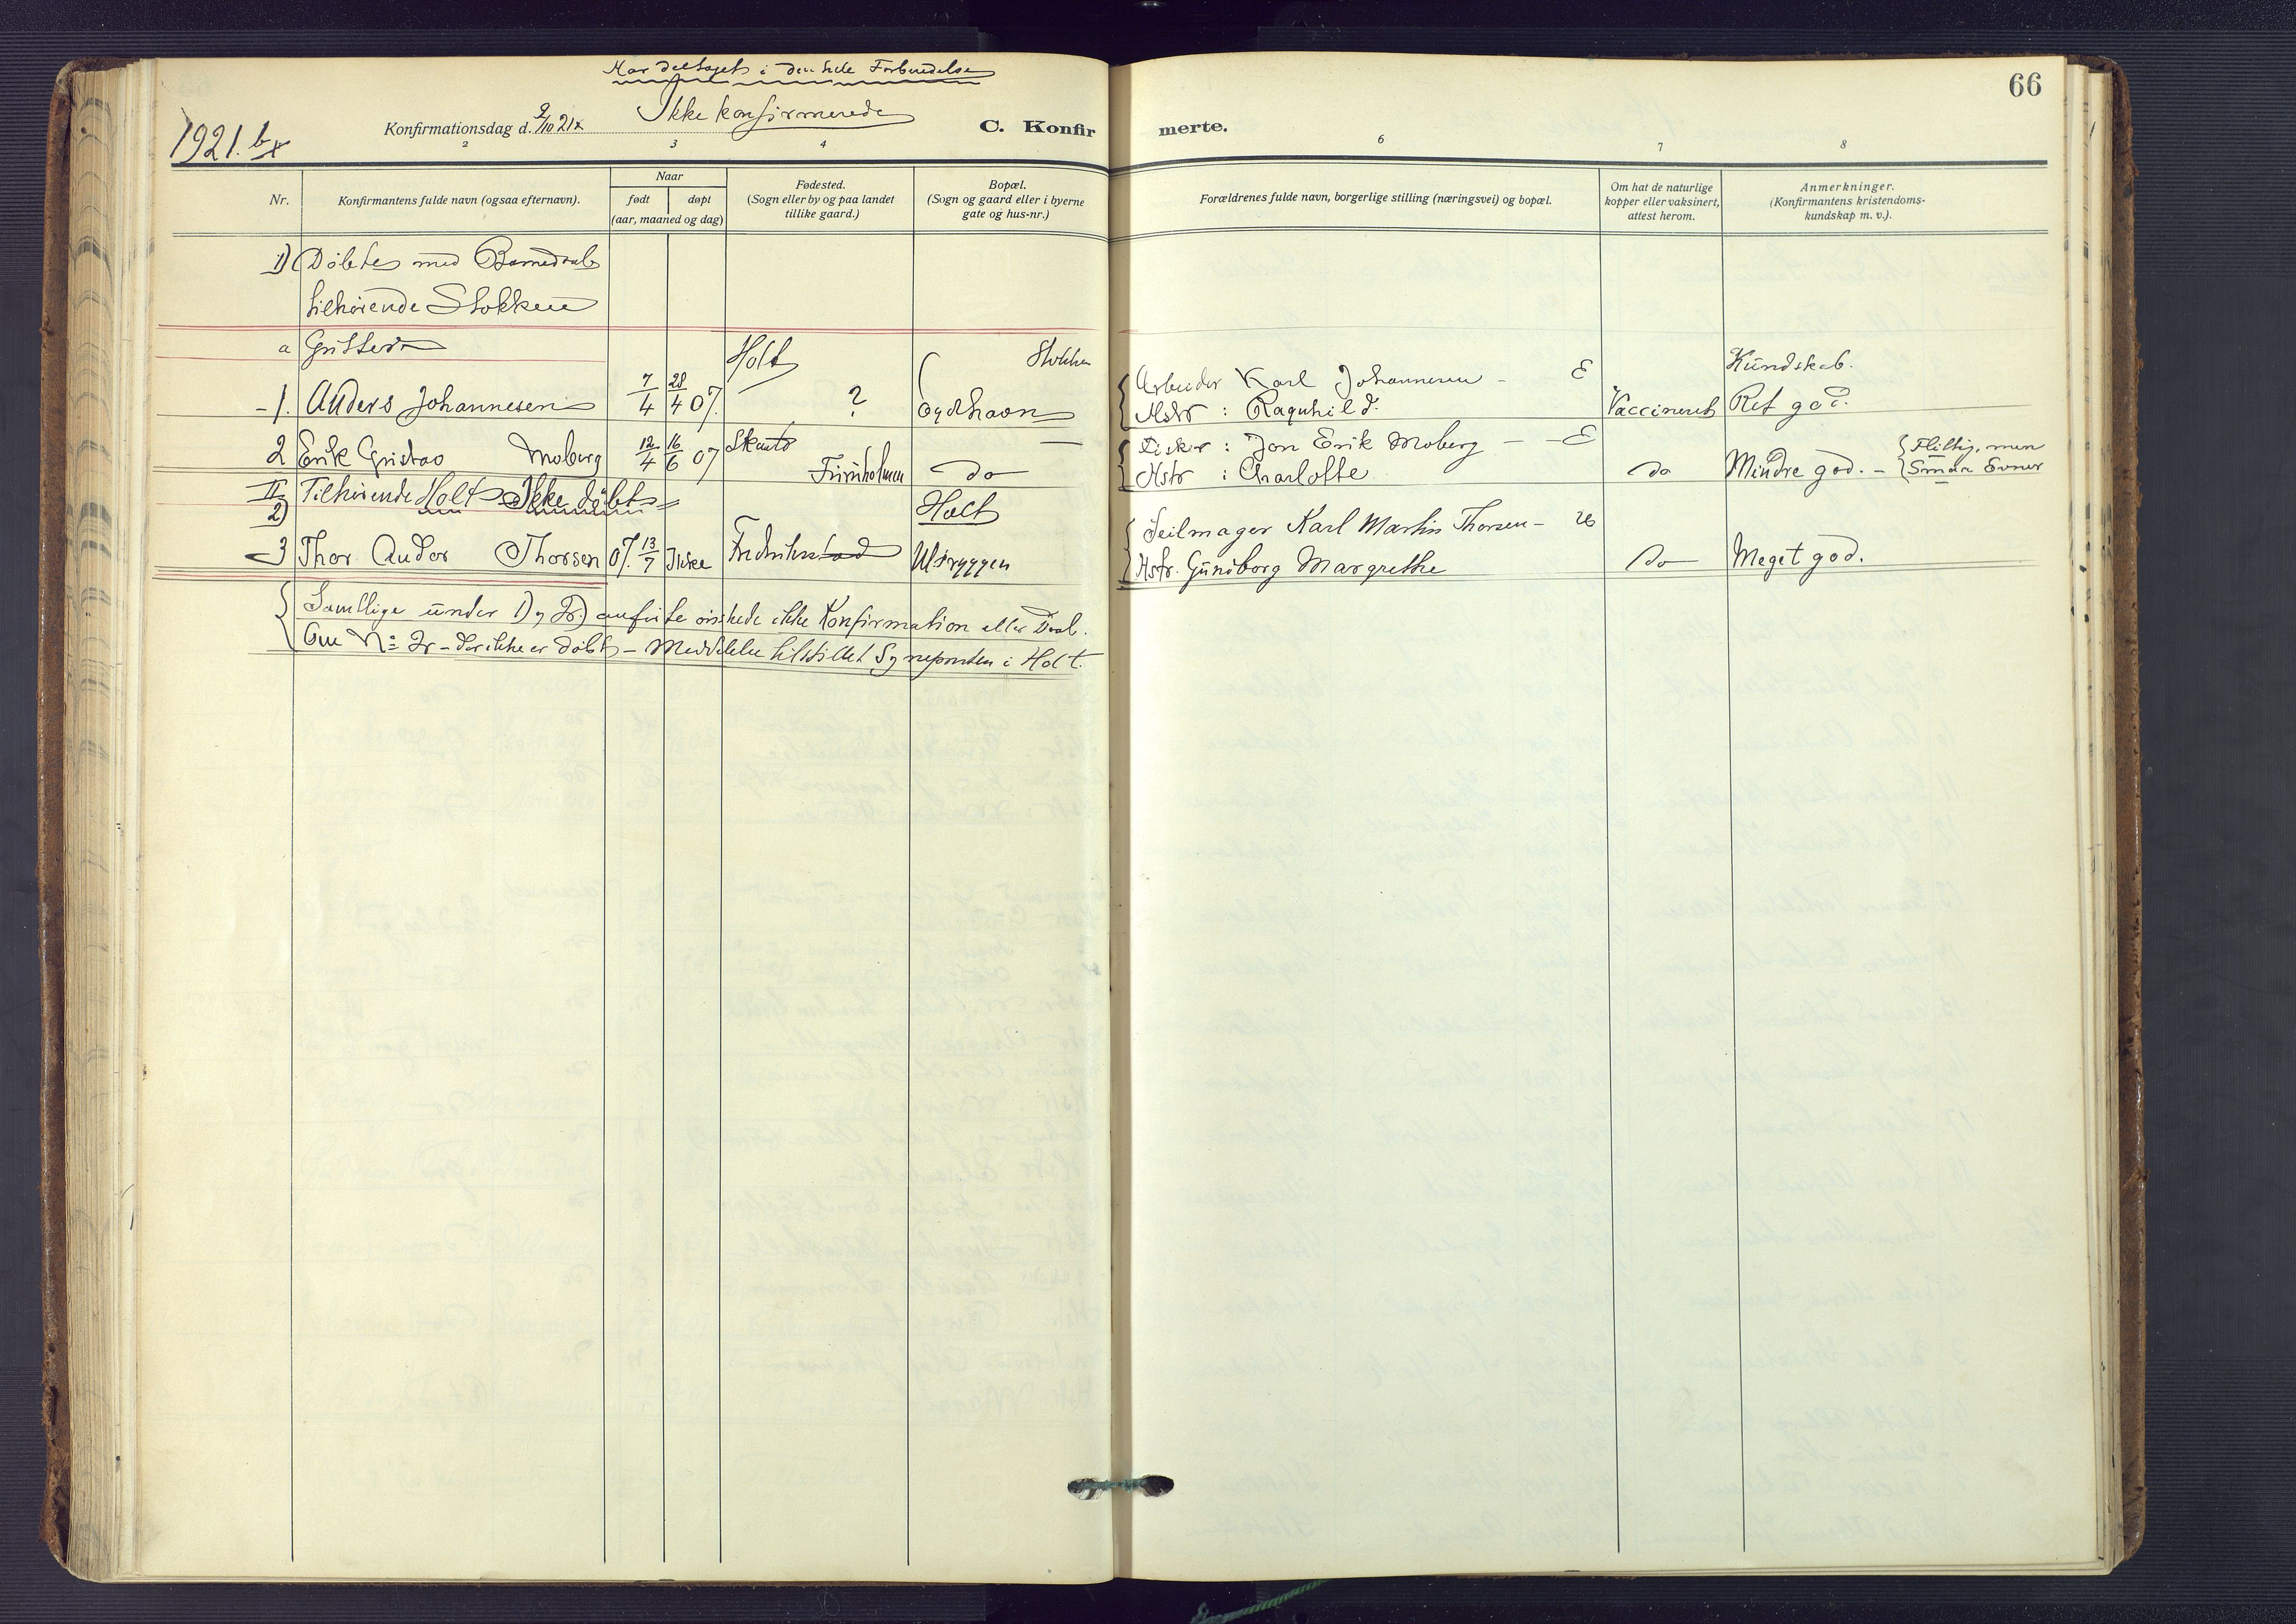 66
Har deltaget i den hele Forberedelse
1921. b
Konfirmationsdag d. 2/10 21 Ikke konfirmerede
C. Konfirmerte.
2 3 4 6 7 8
Nr.
Konfirmantens fulde navn (ogsaa efternavn).
Naar
født døpt
(aar, maaned og dag)
Fødested.
(Sogn eller by og paa landet
tillike gaard.)
Bopæl.
(Sogn og gaard eller i byerne
gate og hus-nr.)
Forældrenes fulde navn, borgerlige stilling (næringsvei) og bopæl.
Om hat de naturlige
kopper eller vaksinert,
attest herom.
Anmerkninger.
(Konfirmantens kristendoms-
kundskap m. v.).
1) Døbte med Barnedaab
tilhørende Stokken
a Gutter
Holt Stokken Kundskab.
1. Anders Johannesen 7/4 28/4 07. ? Eydehavn
Arbeider Karl Johannesen - E
Hstr : Ragnhild. Vaccineret Ret god.
2 Erik Gustav Moberg 12/4 16/6 07 Skatø
do
Fisker : Jon Erik Moberg - E
Hstr : Charlotte do Mindre god. - { Flittig, men
Smaa Evner
II
2) Tilhørende Holt Ikke døbt
Holt
3 Thor Andor Thorsen 07. 13/7 Ikke Fredrikstad
Seilmager Karl Martin Thorsen -
Hstr. Gunborg Margrethe do Meget god.
Samtlige under 1) og 2) anførte ønskede ikke Konfirmation eller Daab.
Om No 2 - der ikke er døbt - Meddelelse tilstillet Sognepresten i Holt.